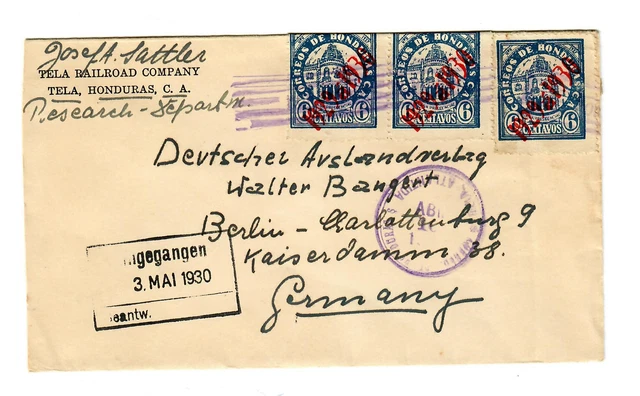 Josef A. Sattler
TELA RAILROAD COMPANY
TELA, HONDURAS, C. A.
Research-Departm.
CORREOS DE HONDURAS
6 CENTAVOS 6
CORREOS DE HONDURAS
6 CENTAVOS 6
CORREOS DE HONDURAS
6 CENTAVOS 6
1930
Deutscher Auslandverlag
Walter Bangert
Berlin-Charlottenburg 9
Kaiserdamm 38.
Germany
ngegangen
3. MAI 1930
eantw.
ATLANTIDA
ABR